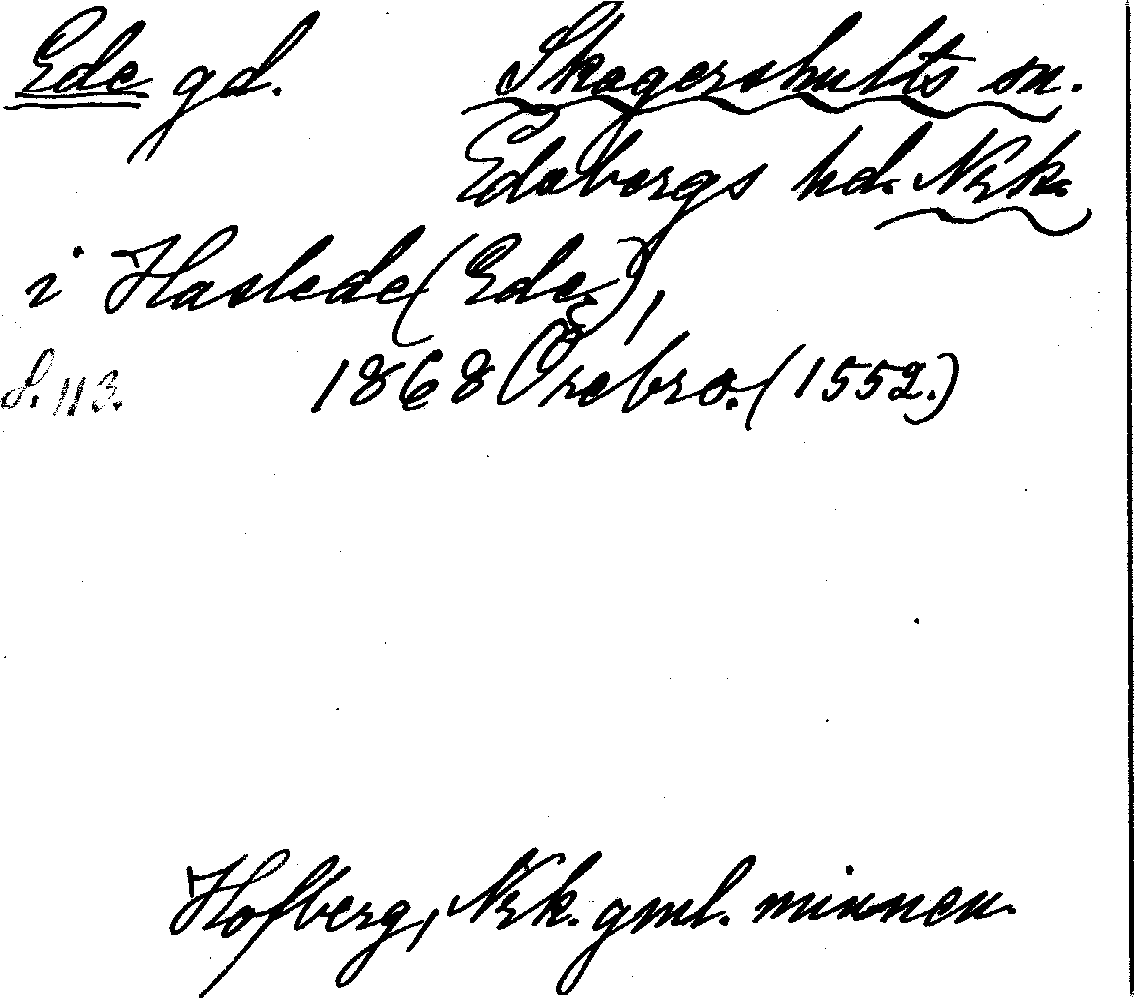 Ede gd. Skagershults sn.
Edsbergs hd. Nrk.
i Haslede (Ede),
s. 113. 1868 Örebro. (1552.)
Hofberg, Nrk. gml. minnen.